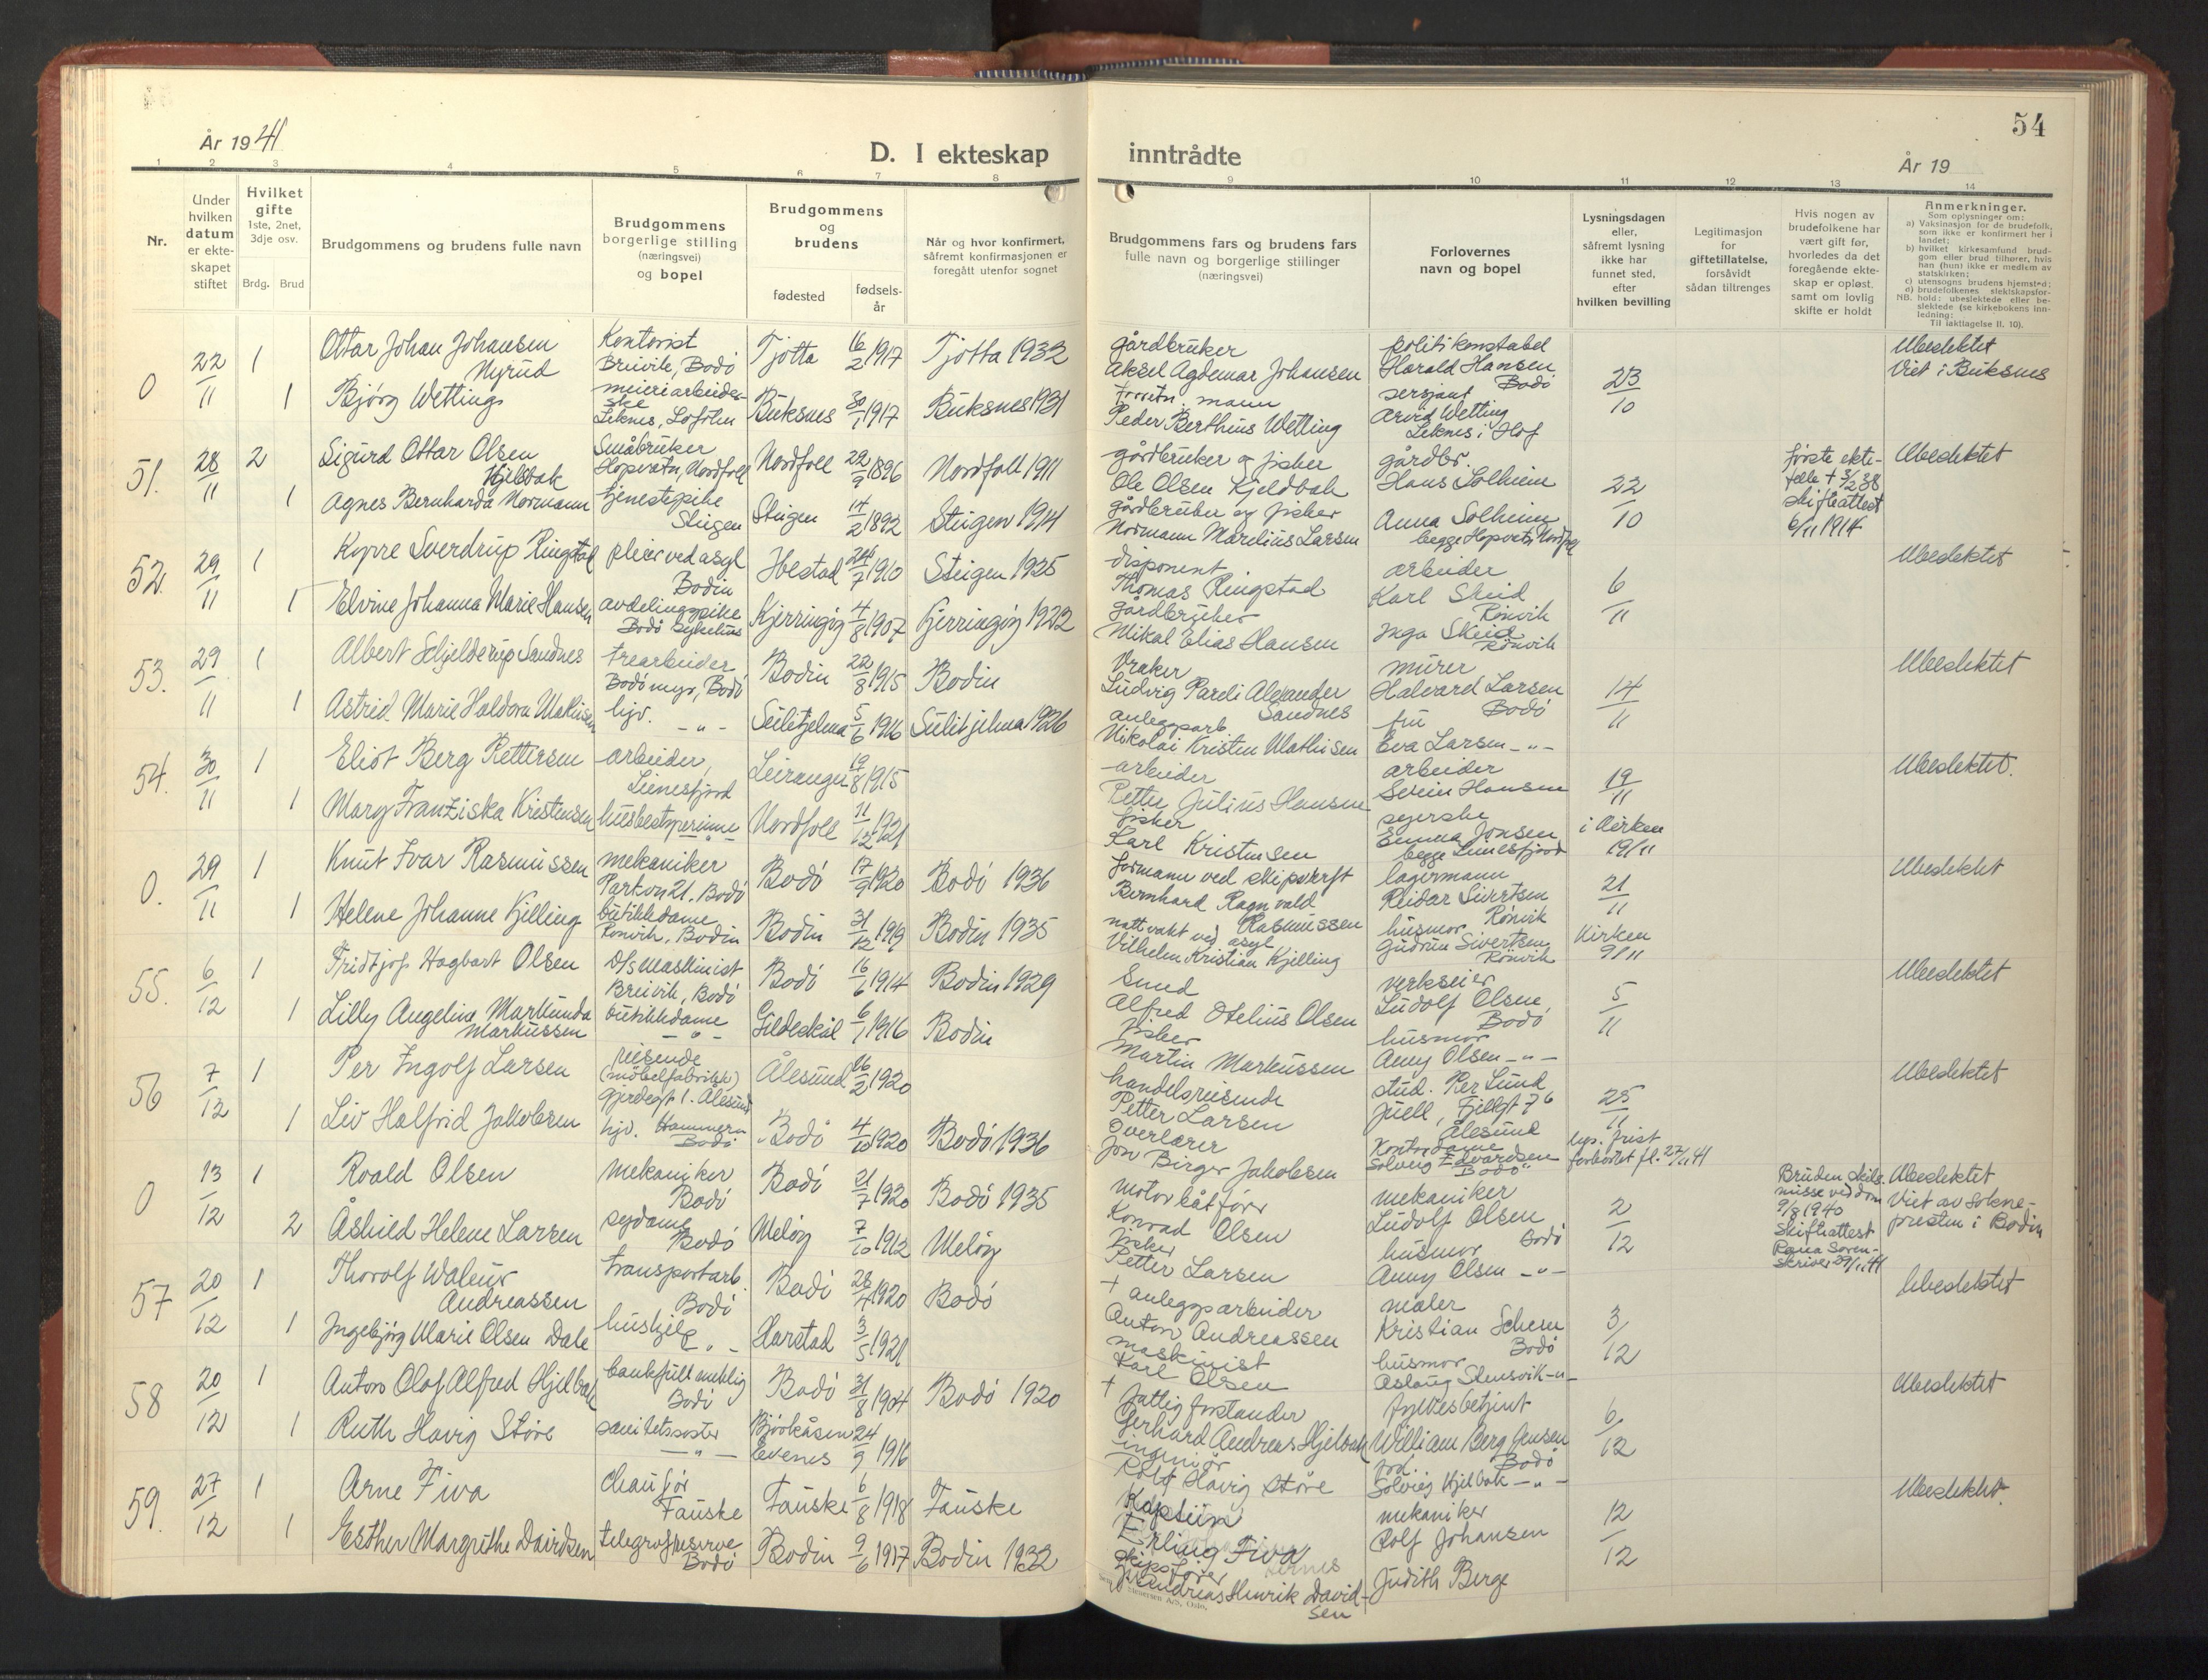 54
År 1941
D. I ekteskap
inntrådte
År 19
1 2 3 4 5 6 7 8 9 10 11 12 13 14
Nr.
Under
hvilken
datum
er ekte-
skapet
stiftet
Hvilket
gifte
1ste, 2net,
3dje osv.
Brdg. Brud
Brudgommens og brudens fulle navn
Brudgommens
borgerlige stilling
(næringsvei)
og bopel
Brudgommens
og
brudens
fødested
fødsels-
år
Når og hvor konfirmert,
såfremt konfirmasjonen er
foregått utenfor sognet
Brudgommens fars og brudens fars
fulle navn og borgerlige stillinger
(næringsvei)
Forlovernes
navn og bopel
Lysningsdagen
eller,
såfremt lysning
ikke har
funnet sted,
efter
hvilken bevilling
Legitimasjon
for
giftetillatelse,
forsåvidt
sådan tiltrenges
Hvis nogen av
brudefolkene har
vært gift før,
hvorledes da det
foregående ekte-
skap er opløst.
samt om lovlig
skifte er holdt
Anmerkninger.
Som oplysninger om:
a) Vaksinasjon for de brudefolk,
som ikke er konfirmert her i
landet;
b) hvilket kirkesamfund brud-
gom eller brud tilhører, hvis
han (hun) ikke er medlem av
statskirken;
c) utensogns brudens hjemsted;
d) brudefolkenes slektskapsfor-
NB. hold: ubeslektede eller be-
slektede (se kirkebokens inn-
ledning:
Til iakttagelse II, 10).
0
22/11
1
Ottar Johan Johansen
Nyrud
Kontorist
Breivik, Bodø
Tjøtta 16/2 1917
Tjøtta 1932
gårdbruker
Aksel Agdemar Johansen
politikonstabel
Harald Hansen
Bodø
23/10
Ubeslektet
Viet i Buksnes
1
Bjørg Wettings
meieriarbeider-
ske
Leknes, Lofoten
Buksnes 30/1 1917
Buksnes 1931
forretn. mann
Peder Bertheus Wetting
sersjant
Arvid Wetting
Leknes i Hof
51.
28/11
2
Sigurd Ottar Olsen
Kjelbak
Småbruker
Hopvatn, Nordfoll
Nordfoll 22/9 1896
Nordfoll 1911
gårdbruker og fisker
Ole Olsen Kjeldbak
gårdbr.
Hans Solheim
22/10
første ekte-
felle + 3/2 38
skifteattest
6/11 1914
Ubeslektet
1
Agnes Bernharda Normann
tjenestepike
Steigen
Steigen 14/2 1892
Steigen 1914
gårdbruker og fisker
Normann Marelius Larsen
Anna Solheim
begge Hopvatn Nordfoll
52.
29/11
1
Kyrre Sverdrup Ringstad
pleier ved asyl
Bodin
24/7 1910
Steigen 1925
disponent
Thomas Ringstad
arbeider
Karl Skeid
Rønvik
6/11
Ubeslektet
1
Elvine Johanna Marie Hansen
avdelingspike
Bodø sykehus
Kjerringøy 4/8 1907
Kjerringøy 1922
gårdbruker
Mikal Elias Hansen
Inga Skeid
Rønvik
53.
29/11
1
Albert Schjelderup Sandnes
trearbeider
Bodømyr, Bodø
Bodin 22/8 1915
Bodin
Vraker
Ludvig Pareli Alexander
Sandnes
murer
Halvard Larsen
Bodø
14/11
Ubeslektet
1
Astrid Marie Haldora Mathisen
hjv. - " -
Sulitjelma 5/6 1916
Sulitjelma 1926
anleggsarb.
Nikolai Kristen Mathisen
fru
Eva Larsen - " -
54.
30/11
1
Eliot Berg Pettersen
arbeider,
Leinesfjord
Leiranger 19/8 1915
arbeider
Petter Julius Hansen
arbeider
Severin Hansen
19/11
Ubeslektet.
1
Mary Franziska Kristensen
husbestyrerinne
- " -
Nordfoll 11/12 1921
fisker
Karl Kristensen
syerske
Emma Jonsen
begge Leinesfjord
i Kirken
19/11
0.
29/11
1
Knut Ivar Rasmussen
mekaniker
Parkvn 21. Bodø
Bodø 17/9 1920
Bodø 1936
formann ved skipsverft
Bernhard Ragnvald
Rasmussen
lagermann
Reidar Sivertsen
Rønvik
21/11
Ubeslektet
1
Helene Johanne Kjelling
butikkdame
Rønvik, Bodin
Bodin 31/12 1919
Bodin 1935
nattvakt ved asyl
Vilhelm Kristian Kjelling
husmor
Gudrun Sivertsen
Rønvik
Kirken
9/11
55.
6/12
1
Fridtjof Hagbart Olsen
D/s maskinist
Breivik, Bodø
Bodø 16/6 1914
Bodin 1929
Smed
Alfred Otelius Olsen
verkseier
Ludolf Olsen,
Bodø
5/11
Ubeslektet
1
Lilly Angeline Markunda
Markussen
butikkdame
- " -
Gildeskål 6/1 1916
Bodin
fisker
Martin Markussen
husmor
Anny Olsen - " -
56
7/12
1
Per Ingolf Larsen
reisende
(møbelfabrikk)
Gjerdegt 1. Ålesund
Ålesund 26/2 1920
handelsreisende
Petter Larsen
stud. Per Lund
Juell, Fjellgt 76
Ålesund
25/11
Ubeslektet
1
Liv Halfrid Jakobsen
hjv. Hammern
Bodø
Bodø 4/10 1920
Bodø 1936
Overlærer
Jon Birger Jakobsen
Kontordame
Solveig Edvardsen
Bodø
lys. frist
forkortet fl. 27/11 41
0
13/12
1
Roald Olsen
mekaniker
Bodø
Bodø 21/7 1920
Bodø 1935
Motorbåtfører
Konrad Olsen
mekaniker
Ludolf Olsen
Bodø
2/12
Bruden skils-
misse ved dom
9/8 1940
Skifteattest
Rana Soren-
skriver 29/11 41
Ubeslektet
Viet av sokne-
presten i Bodin
2
Åshild Helene Larsen
sydame
Bodø
Meløy 7/10 1912
Meløy
fisker
Petter Larsen
husmor
Anny Olsen - " -
57
20/12
1
Thorolf Waleur
Andreassen
transportarb.
Bodø
Bodø 28/4 1920
Bodø
+ anleggsarbeider
Anton Andreassen
maler
Kristian Scheen
Bodø
3/12
Ubeslektet
1
Ingebjørg Marie Olsen Dale
hushjelp - " -
Harstad 3/5 1921
maskinist
Karl Olsen
husmor
Aslaug Stensvik - " -
58
20/12
1
Anton Olaf Alfred Hjelbak
bankfullmektig
Bodø
Bodø 31/8 1904
Bodø 1920
+ fattigforstander
Gerhard Andreas Hjelbak
fylkesbetjent
William Berg Jensen
Bodø
6/12
Ubeslektet
1
Ruth Havig Støre
sanitetssøster
- " -
Bjørkåsen
Evenes
24/9 1916
ingeniør
Rolf Havig Støre
Solveig Hjelbak - " -
59.
27/12
1
Arne Fiva
Chaufør
Fauske
Fauske 6/8 1918
Fauske
Kaptein
Erling Fiva
mekaniker
Rolf Johansen
12/12
Ubeslektet.
1
Esther Margrethe Davidsen
telegrafreserve
Bodø
Bodin 9/6 1917
Bodin 1932
skipsfører
Andreas Henrik David-
sen
Judith Berge